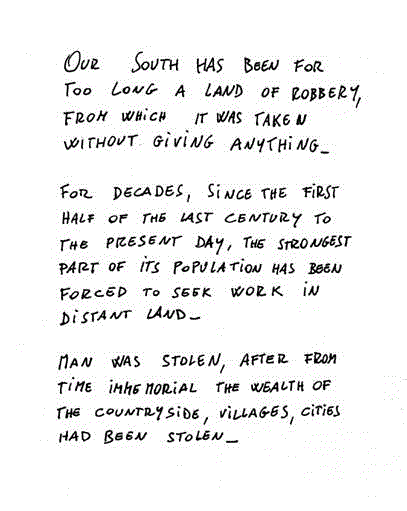 OUR SOUTH HAS BEEN FOR
TOO LONG A LAND OF ROBBERY,
FROM WHICH IT WAS TAKEN
WITHOUT GIVING ANYTHING_
FOR DECADES, SINCE THE FIRST
HALF OF THE LAST CENTURY TO
THE PRESENT DAY, THE STRONGEST
PART OF ITS POPULATION HAS BEEN
FORCED TO SEEK WORK IN
DISTANT LAND_
MAN WAS STOLEN, AFTER FROM
TIME IMMEMORIAL THE WEALTH OF
THE COUNTRYSIDE, VILLAGES, CITIES
HAD BEEN STOLEN_